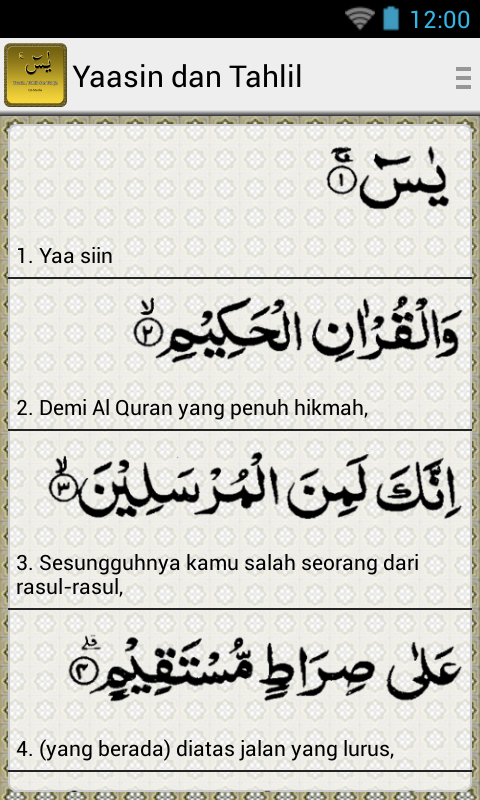 12:00
Yaasin dan Tahlil
يٰسٓ ۚ ١
1. Yaa siin
وَالْقُرْاٰنِ الْحَكِيْمِ ۙ ٢
2. Demi Al Quran yang penuh hikmah,
اِنَّكَ لَمِنَ الْمُرْسَلِيْنَ ۙ ٣
3. Sesungguhnya kamu salah seorang dari
rasul-rasul,
عَلٰى صِرَاطٍ مُّسْتَقِيْمٍ ۗ ٤
4. (yang berada) diatas jalan yang lurus,